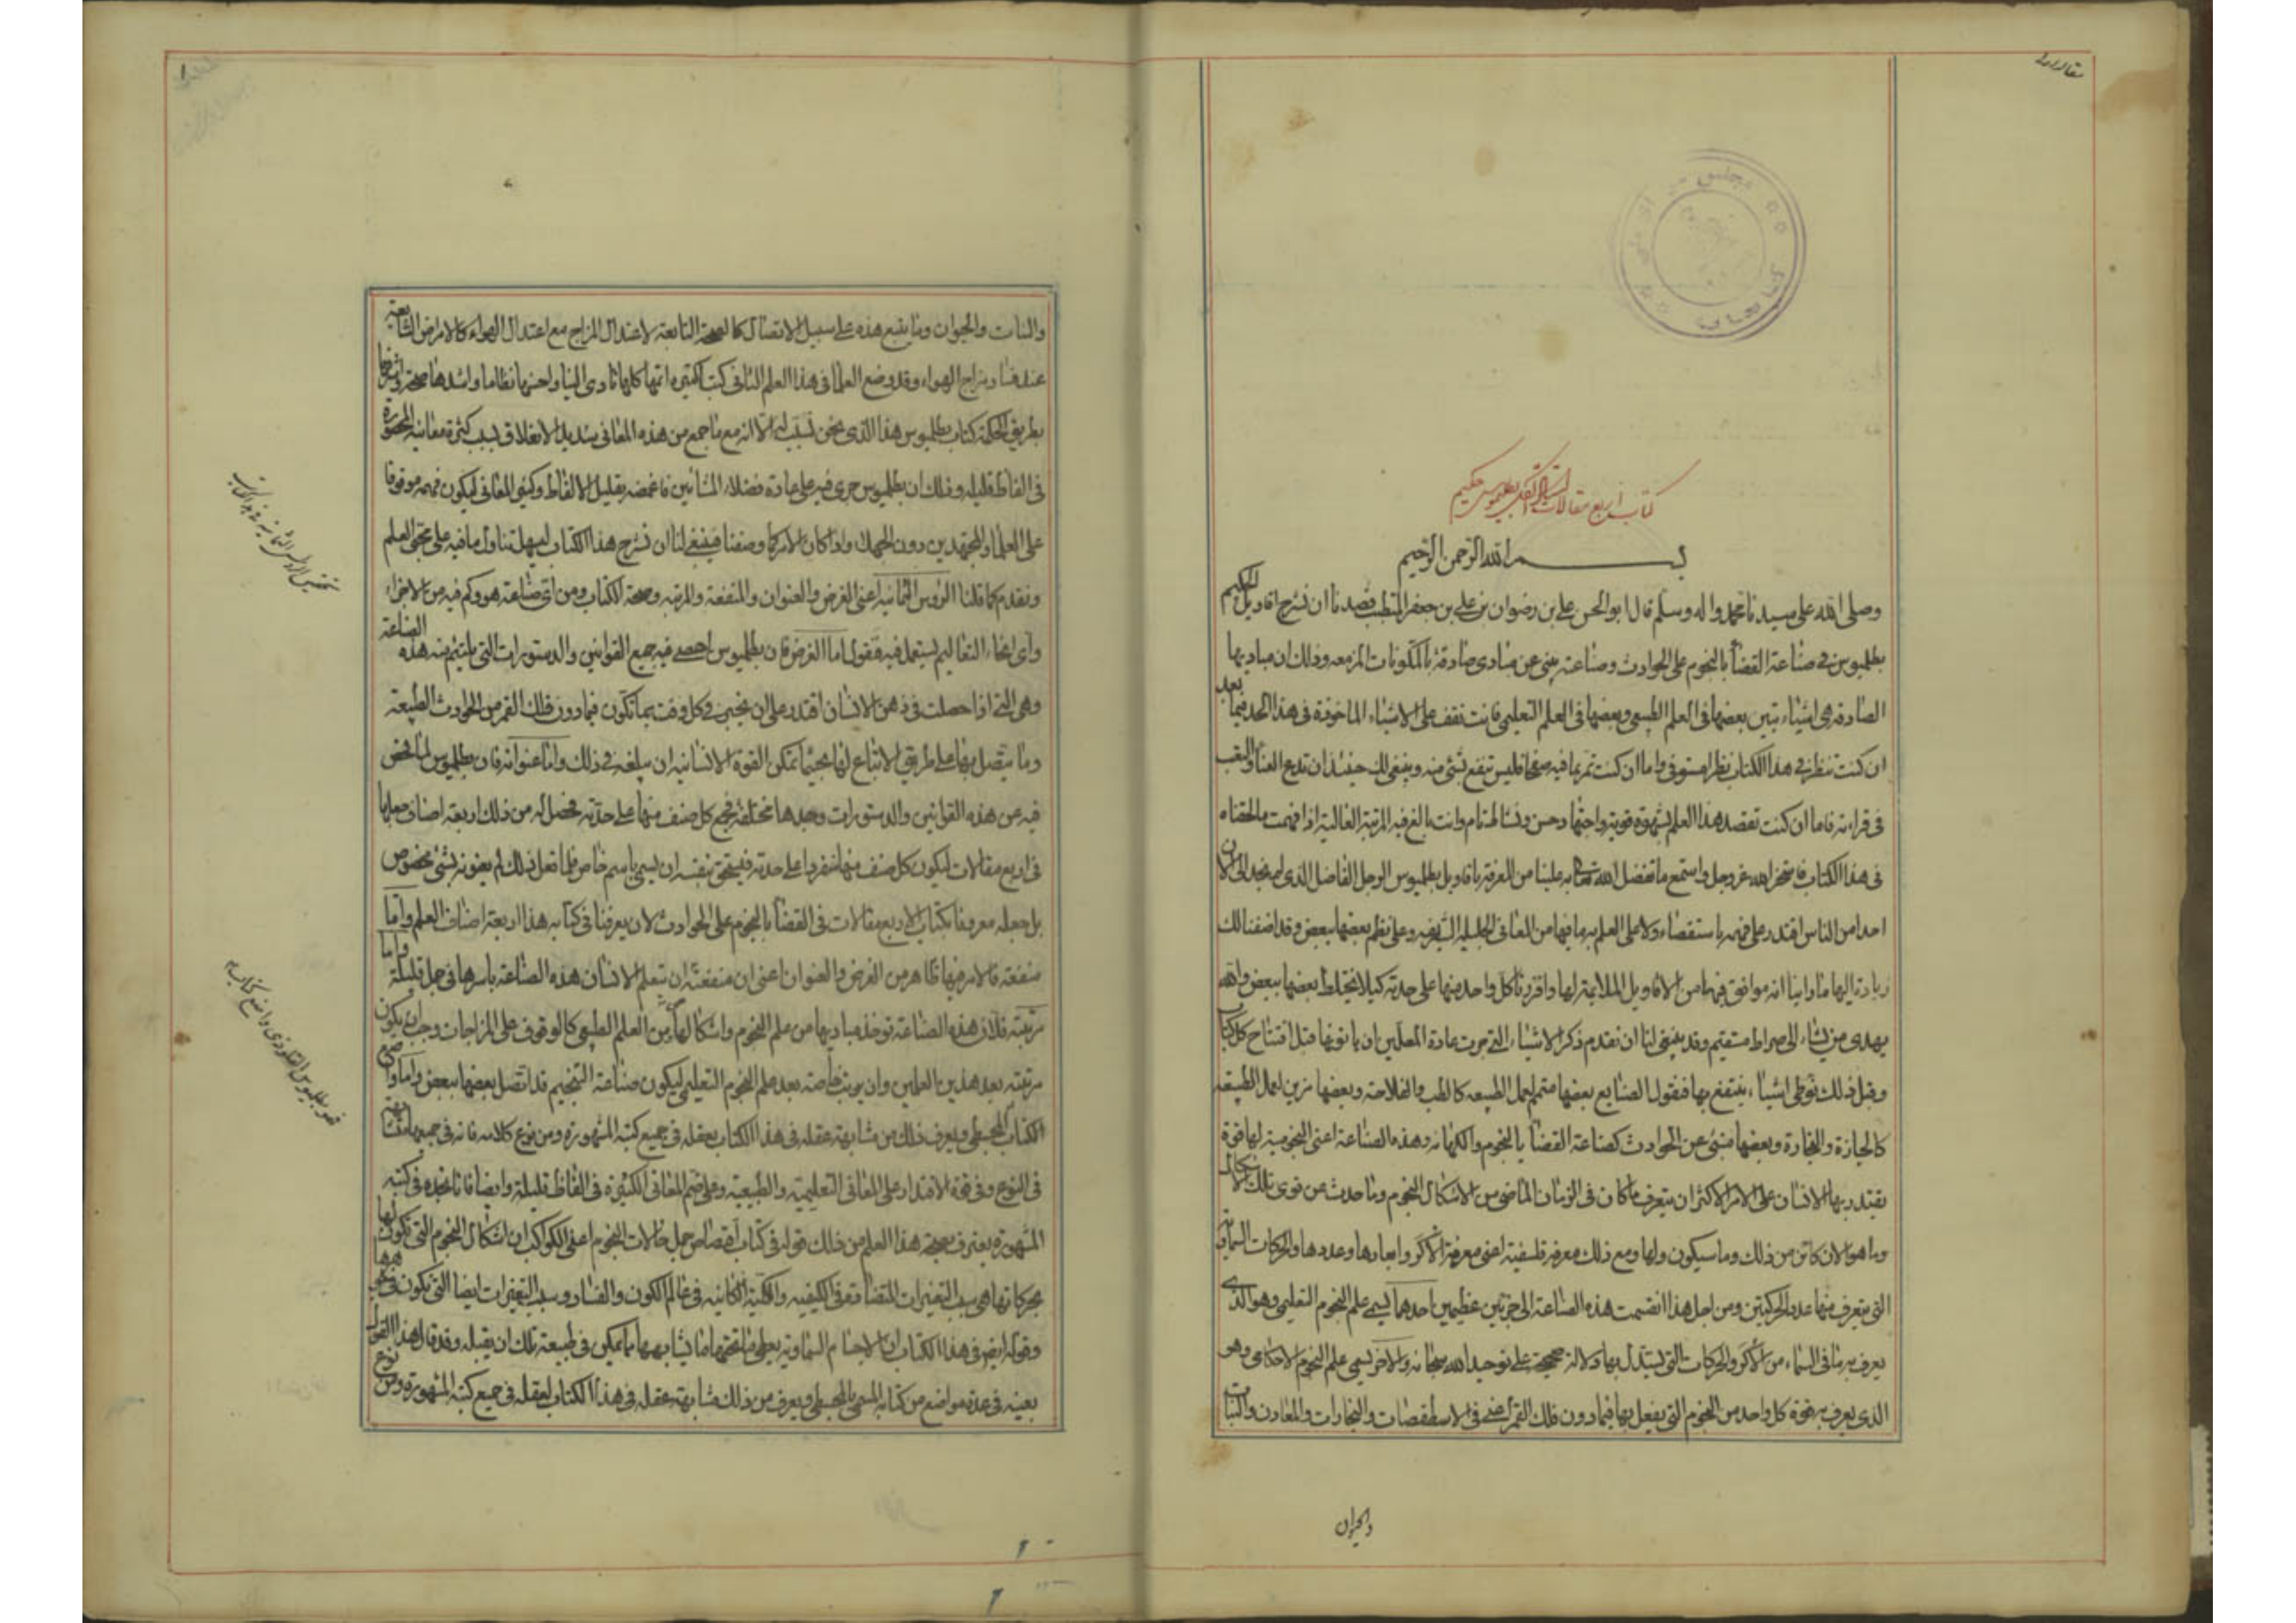 كتاب اربع مقالات بطليموس حكيم
بسم الله الرحمن الرحيم
وصلى الله على سيدنا محمد واله وسلم قال ابو الحسن على بن رضوان بن على بن جعفر المتطبب قصدنا ان نشرح اقاويل الحكيم
بطليموس فى صناعة القضاء بالنجوم على الحوادث وصناعته ينبى عن مبادى صادقة بالمكونات المزمعه وذلك ان مباديها
الصادقه هى اشياء يتبين بعضها فى العلم الطبيعى وبعضها فى العلم التعليمى فانت تقف على الاشياء الماخوذة فى هذا الحد فيما بعد
ان كنت تنظر فى هذا الكتاب نظرا مستوفى واما ان كنت تمر بما فيه صفحا فليس تنتفع بشئ منه وينبغى لك حينئذ ان تدع العنا والتعب
فى قراءته فاما ان كنت تقصد هذا العلم بشهوة قوية واجتهاد حسن ونشاط تام وانت بالغ فيه المرتبة العالية اذا فهمت ما لحقناه
فى هذا الكتاب فاستخر الله عز وجل واستمع ما تفضل الله به علينا من المعرفة باقاويل بطليموس الرجل الفاضل الذى لم نجد الى الان
احدا من الناس اقتدر على فهمه باستقصاء ولا على العلم بما فيها من المعانى الجليلة الشريفه وعلى نظم بعضها ببعض وقد اضفنا لك
زيادة اليها ما راينا انه موافق فيها من الاقاويل الملايمة لها وافردنا كل واحد منها على حدته كيلا يختلط بعضها ببعض والله
يهدى من يشاء الى صراط مستقيم وقد ينبغى لنا ان نقدم ذكر الاشياء التى جرت عادة المعلمين ان ياتوا بها قبل افتتاح كل كتاب
وقبل ذلك نوطى اشياء ينتفع بها فنقول الصنايع بعضها متمم لعمل الطبيعه كالطب والفلاحة وبعضها مزين لعمل الطبيعة
والنجارة وبعضها منبئ عن الحوادث كصناعة القضا بالنجوم والكهانه وهذه الصناعة اعنى النجومية لها قوة
يقتدر بها الانسان على الامر الاكثر ان يتعرف ما كان فى الزمان الماضى من الاشكال النجوم وما حدث عن قوى تلك الاشكال
وما هو الان كائن من ذلك وما سيكون ولها مع ذلك معرفة فلسفية اعنى معرفة الاكر وابعادها وعددها والحركات السماوية
التى يتعرف منها عدد الحركتين ومن اجل هذا انقسمت هذه الصناعة الى جزئين عظيمين احدهما يسمى علم النجوم التعليمى وهو الذى
يعرف به ما فى السماء من الاكر والحركات التى يستدل بها دلالة صحيحة على توحيد الله سبحانه والاخر يسمى علم النجوم الاحكامى وهو
الذى يعرف به قوة كل واحد من النجوم التى يفعل بها فيما دون فلك القمر اعنى فى الاسطقصات والبخارات والمعادن والنبات
والحيوان
والنبات والحيوان وما يتبع هذه على سبيل الاتصال كالصحة التابعة لاعتدال المزاج مع اعتدال الهواء كالامراض التابعة
عند فساد مزاج الهواء وقد وضع العلما فى هذا العلم الثانى كتبا كثيرة اتمها كلها تادى الينا واحسنها نظاما واشدها صحة
بطريق الحكمة كتاب بطليموس هذا الذى نحن بسبيله الا انه مع ما جمع من هذه المعانى شديد الانغلاق بسبب كثرة معانيه المحصورة
فى الفاظ قليله وذلك ان بطليموس جرى فيه على عادة فضلاء المشائين فاغمضه بتقليل الالفاظ وكثير المعانى ليكون فهمه موقوفا
على العلماء والمجتهدين دون الجهال واذا كان الامر كما وصفنا فينبغى لنا ان نشرح هذا الكتاب ليسهل تناول ما فيه على محبى العلم
ونقدم كما قلنا الرؤس الثمانيه اعنى الغرض والعنوان والمنفعة والمرتبه وصحة الكتاب ومن اى صناعة هو وكم فيه من الاجزاء
واى انحاء التعاليم يستعمل فيه فنقول اما الغرض فان بطليموس احصى فيه جميع القوانين والدستورات التى يلتئم منه هذه الصناعة
وهى التى اذا حصلت فى ذهن الانسان اقتدر على ان يخبر فى كل وقت بما تكون فيما دون فلك القمر من الحوادث الطبيعة
وما يتصل بها على طريق الاتباع لها بحيثما تمكن القوة الانسانيه ان يبلغه فى ذلك واما عنوانه فان بطليموس لما فحص
فيه عن هذه القوانين والدستورات وجدها مختلفة فجمع كل صنف منها على حدته فحصل له من ذلك اربعة اصناف جعلها
فى اربع مقالات ليكون كل صنف منها منفردا على حدته فيستحق بنفسه ان يسمى باسم خاص فلما فعل ذلك لم يعنونه بشئ مخصوص
بل جعله معروفا بكتاب الاربع مقالات فى القضا بالنجوم على الحوادث لان يعرفنا فى كتابه هذا اربعة اصناف العلم واما
منفعته فالامر فيها ظاهر من الغرض والعنوان اعنى ان منفعته ان يتعلم الانسان هذه الصناعة باسرها فى جمل قليلة واما
مرتبته فلان هذه الصناعة توخذ مباديها من علم النجوم واشكالها ومن العلم الطبيعى كالوقوف على المزاجات وجب ان يكون
مرتبته بعد هذين العلمين وان يرتب خاصة بعد علم النجوم التعليمى ليكون صناعة التنجيم قد اتصل بعضها ببعض واما واضع
الكتاب المجسطى ويعرف ذلك من مشابهة عقله فى هذا الكتاب بعقله فى جميع كتبه المشهورة ومن نوع كلامه فانه فى جميعها متشابهة
فى النوع وفى قوة الاقتدار على المعانى التعليمية والطبيعية وعلى ضم المعانى الكثيرة فى الفاظ قليلة وايضا فانا نجده فى كتبه
المشهورة يعترف بصحة هذا العلم من ذلك قوله فى كتاب اقتصاص جمل حالات النجوم اعنى الكواكب ان اشكال النجوم التى تكون لها
بحركاتها هى سبب التغيرات المتضادة فى الكيفيه والكمية الكائنه فى عالم الكون والفساد وسبب التغيرات ايضا التى تكون
وقوله ايضا فى هذا الكتاب ان الاجسام السماوية يعطى ما تحتها ما يشابهها ما يمكن فى طبيعة تلك ان يقبله وقد قال هذا القول
بعينه فى عدة مواضع من كتابه المسمى بالمجسطى ويعرف من ذلك مشابهة عقله فى هذا الكتاب لعقله فى جميع كتبه المشهورة ومن نوع